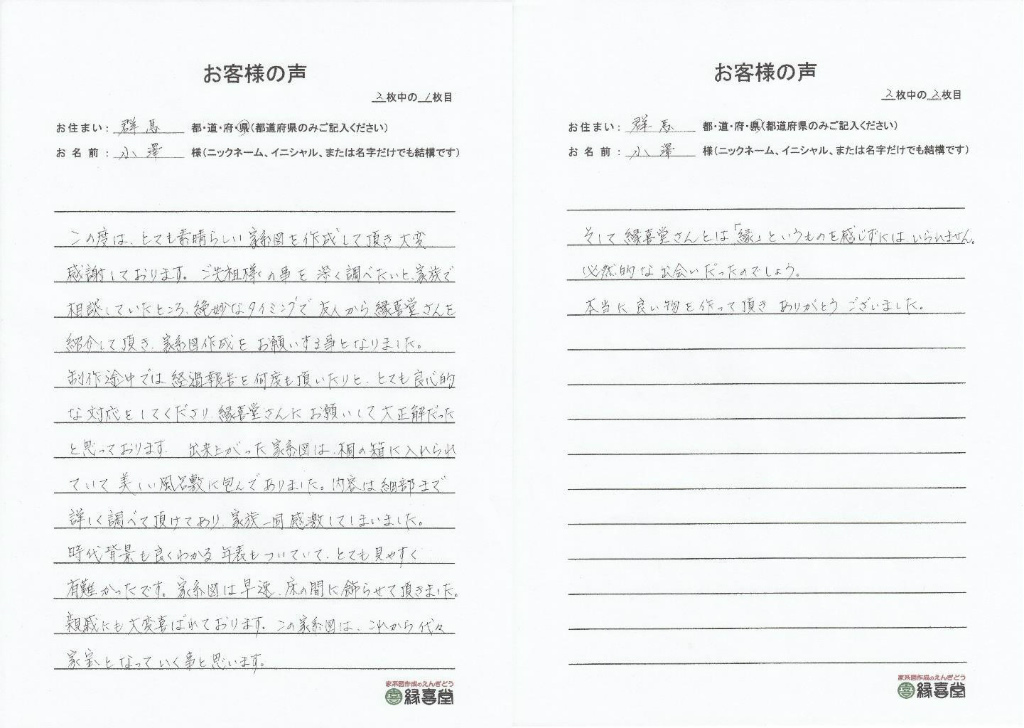 お客様の声
2枚中の1枚目
お住まい：群馬 都・道・府・県（都道府県のみご記入ください）
お名前：小澤 様（ニックネーム、イニシャル、または名字だけでも結構です）
この度は、とても素晴らしい家系図を作成して頂き大変
感謝しております。ご先祖様の事を深く調べたいと家族で
相談していたところ、絶妙なタイミングで友人から縁喜堂さんを
紹介して頂き、家系図作成をお願いする事となりました。
制作途中では経過報告を何度も頂いたりと、とても良心的
な対応をしてくださり縁喜堂さんにお願いして大正解だった
と思っております。出来上がった家系図は、桐の箱に入れられ
ていて美しい風呂敷に包んでありました。内容は細部まで
詳しく調べて頂けており家族一同感激してしまいました。
時代背景も良くわかる年表もついていて、とても見やすく
有難かったです。家系図は早速、床の間に飾らせて頂きました。
親戚にも大変喜ばれております。この家系図は、これから代々
家宝となっていく事と思います。
家系図作成のえんぎどう
縁喜堂
お客様の声
2枚中の2枚目
お住まい：群馬 都・道・府・県（都道府県のみご記入ください）
お名前：小澤 様（ニックネーム、イニシャル、または名字だけでも結構です）
そして縁喜堂さんとは「縁」というものを感じずにはいられません。
必然的な出会いだったのでしょう。
本当に良い物を作って頂きありがとうございました。
家系図作成のえんぎどう
縁喜堂